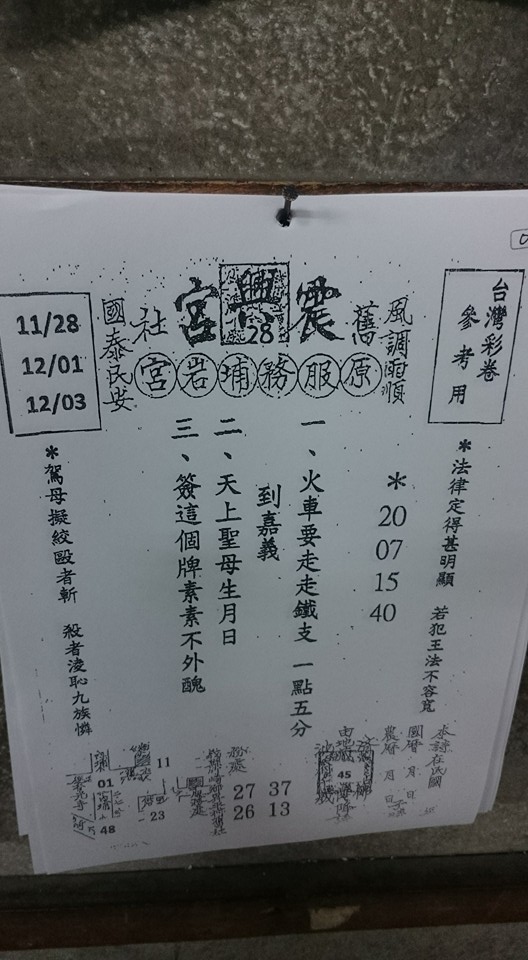 台灣彩卷
參考用
風調雨順
震興宮
28
舊
社
國泰民安
原服務埔岩宮
11/28
12/01
12/03
*法律定得甚明顯 若犯王法不容寬
*
20
07
15
40
一、火車要走走鐵支 一點五分
到嘉義
二、天上聖母生月日
三、簽這個牌素素不外醜
*駕母擬絞毆者斬 殺者淩恥九族憐
本諱在民國
國曆 月 日
農曆 月 日
45
27 37
26 13
11
01
23
48